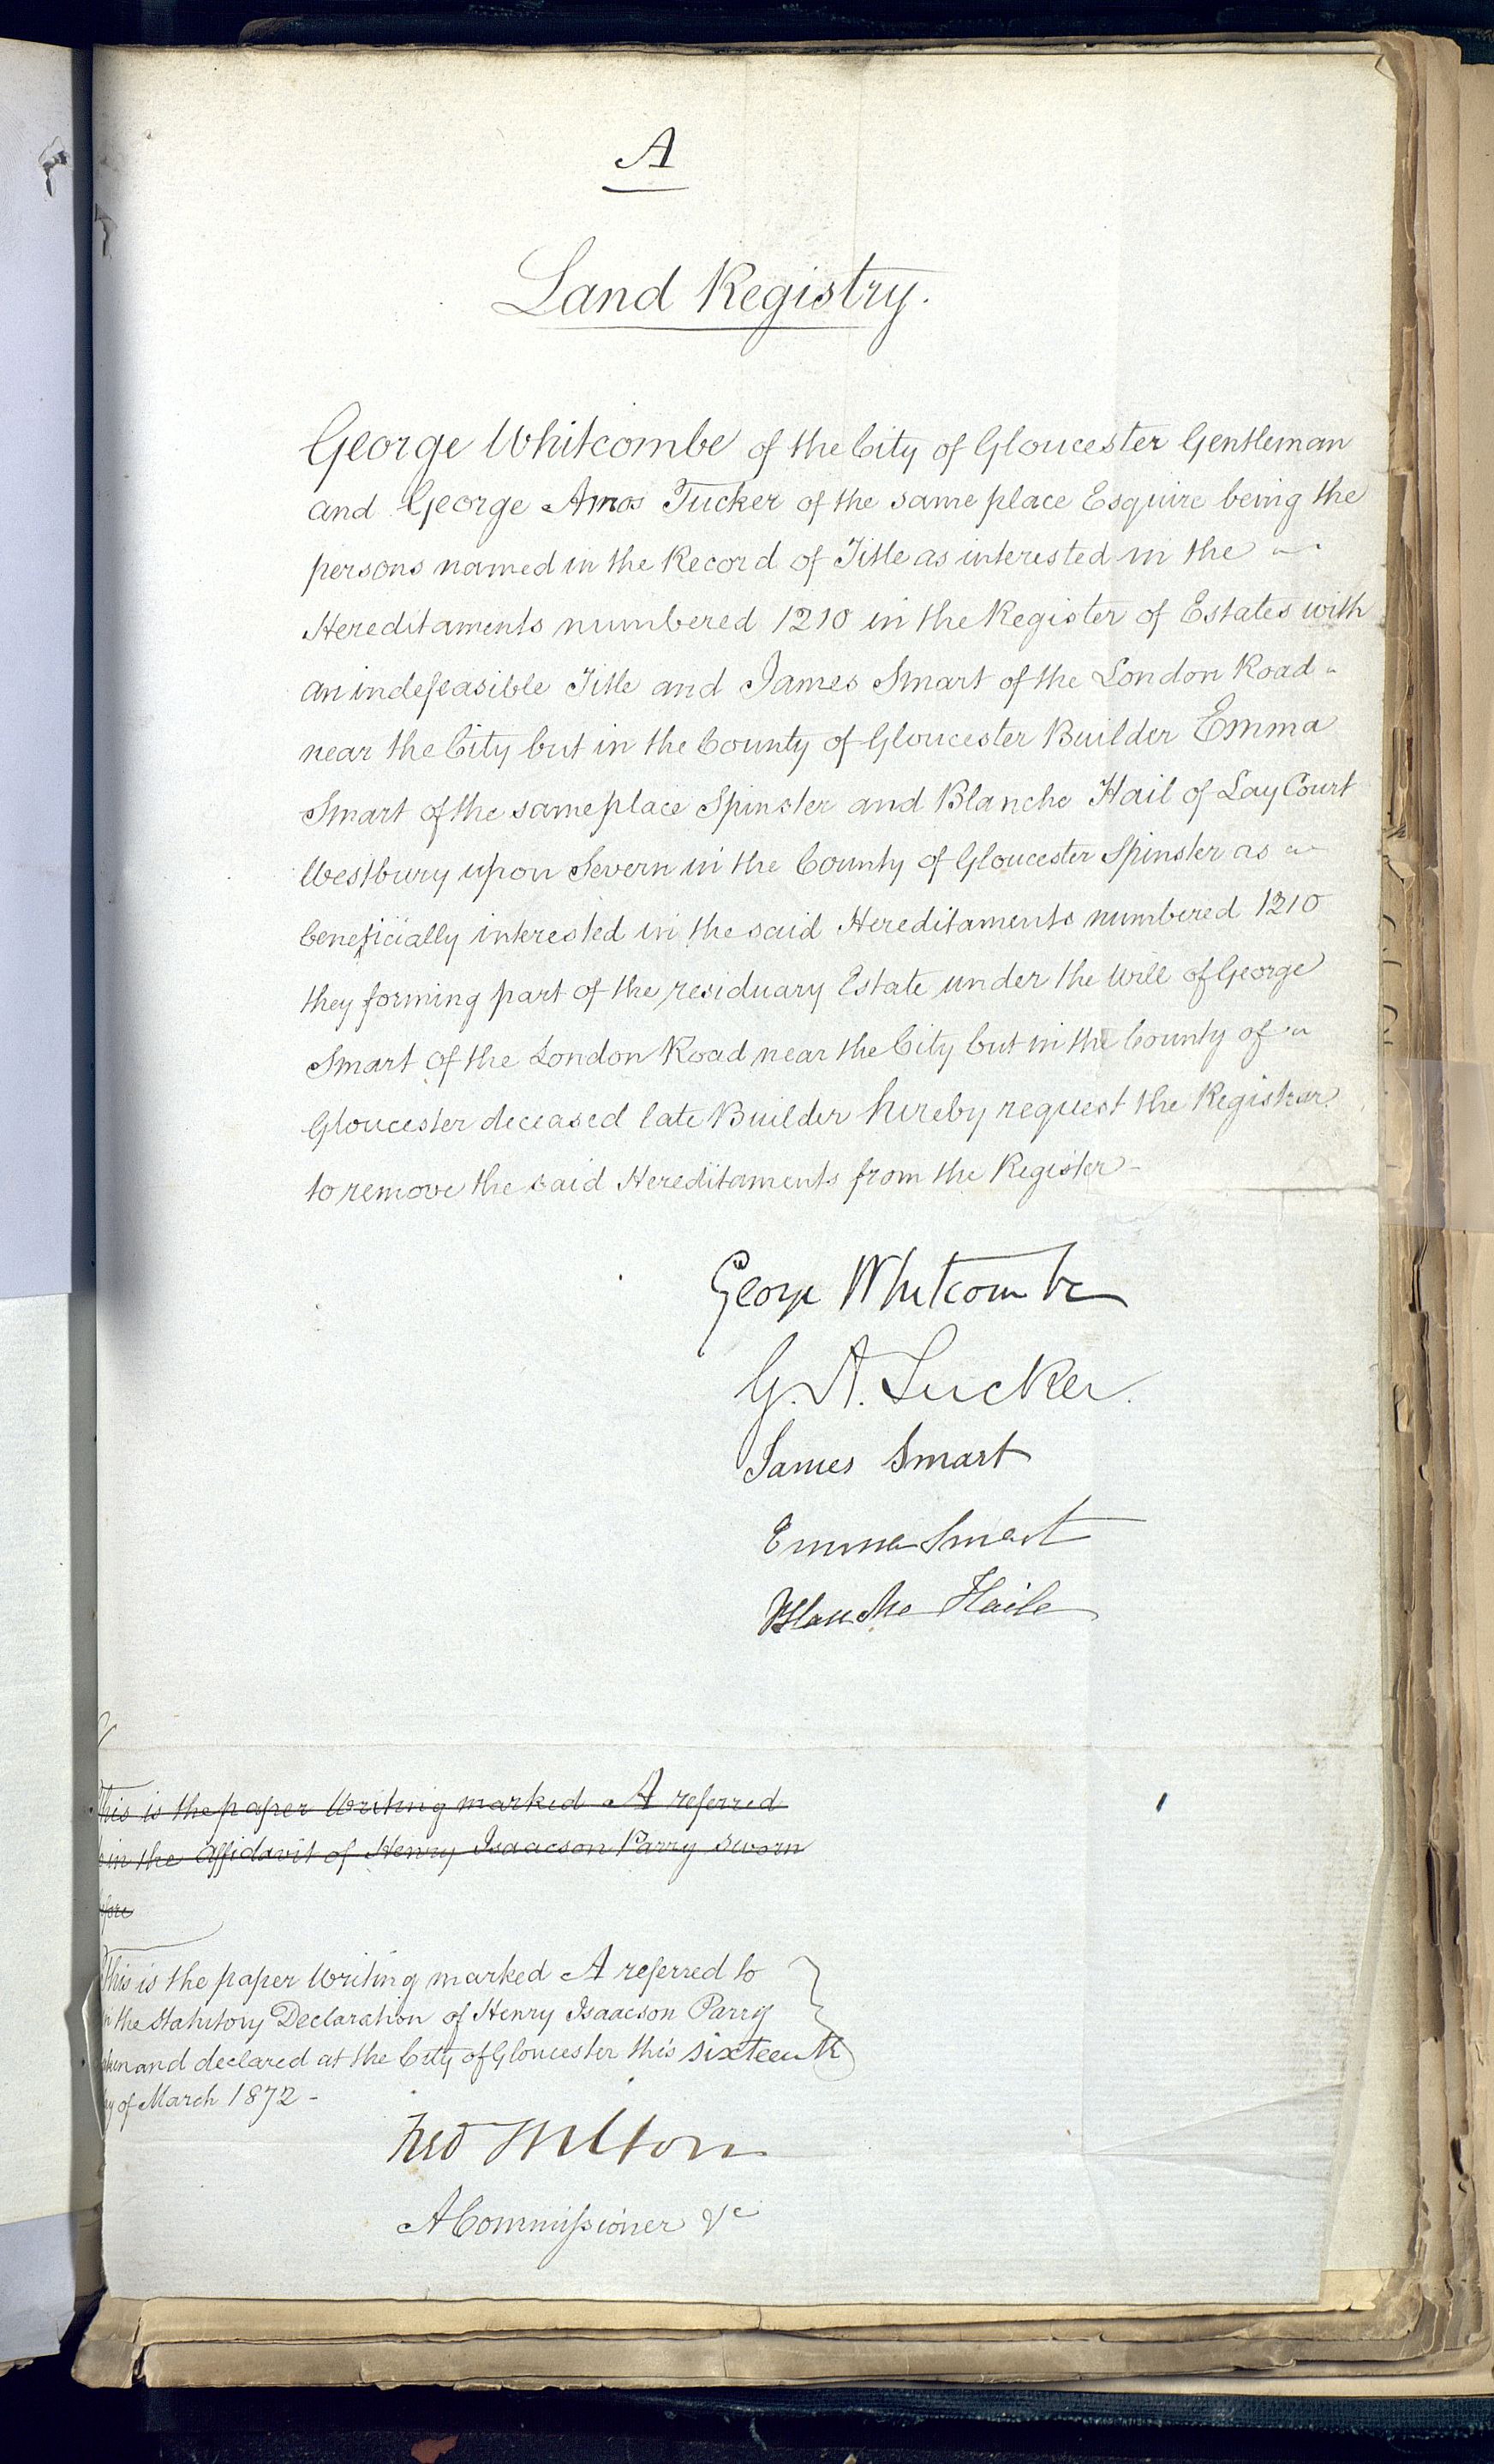 A
Land Registry.
George Whitcombe of the City of Gloucester Gentleman
and George Amos Tucker of the same place Esquire being the
persons named in the Record of Title as interested in the
Hereditaments numbered 1210 in the Register of Estates with
an indefeasible Title and James Smart of the London Road
near the City but in the County of Gloucester Builder Emma
Smart of the same place Spinster and Blanche Hail of Lay Court
Westbury upon Severn in the County of Gloucester Spinster as
beneficially interested in the said Hereditaments numbered 1210
they forming part of the residuary Estate under the Will of George
Smart of the London Road near the City but in the County of
Gloucester deceased late Builder hereby request the Registrar
to remove the said Hereditaments from the Register
George Whitcombe
G. A. Tucker.
James Smart
Emma Smart
Blanche Haile
This is the paper Writing marked A referred
in the Affidavit of Henry Isaacson Parry sworn
This is the paper Writing marked A referred to
the Statutory Declaration of Henry Isaacson Parry
and declared at the City of Gloucester this sixteenth
of March 1872 -
A Commissioner &c